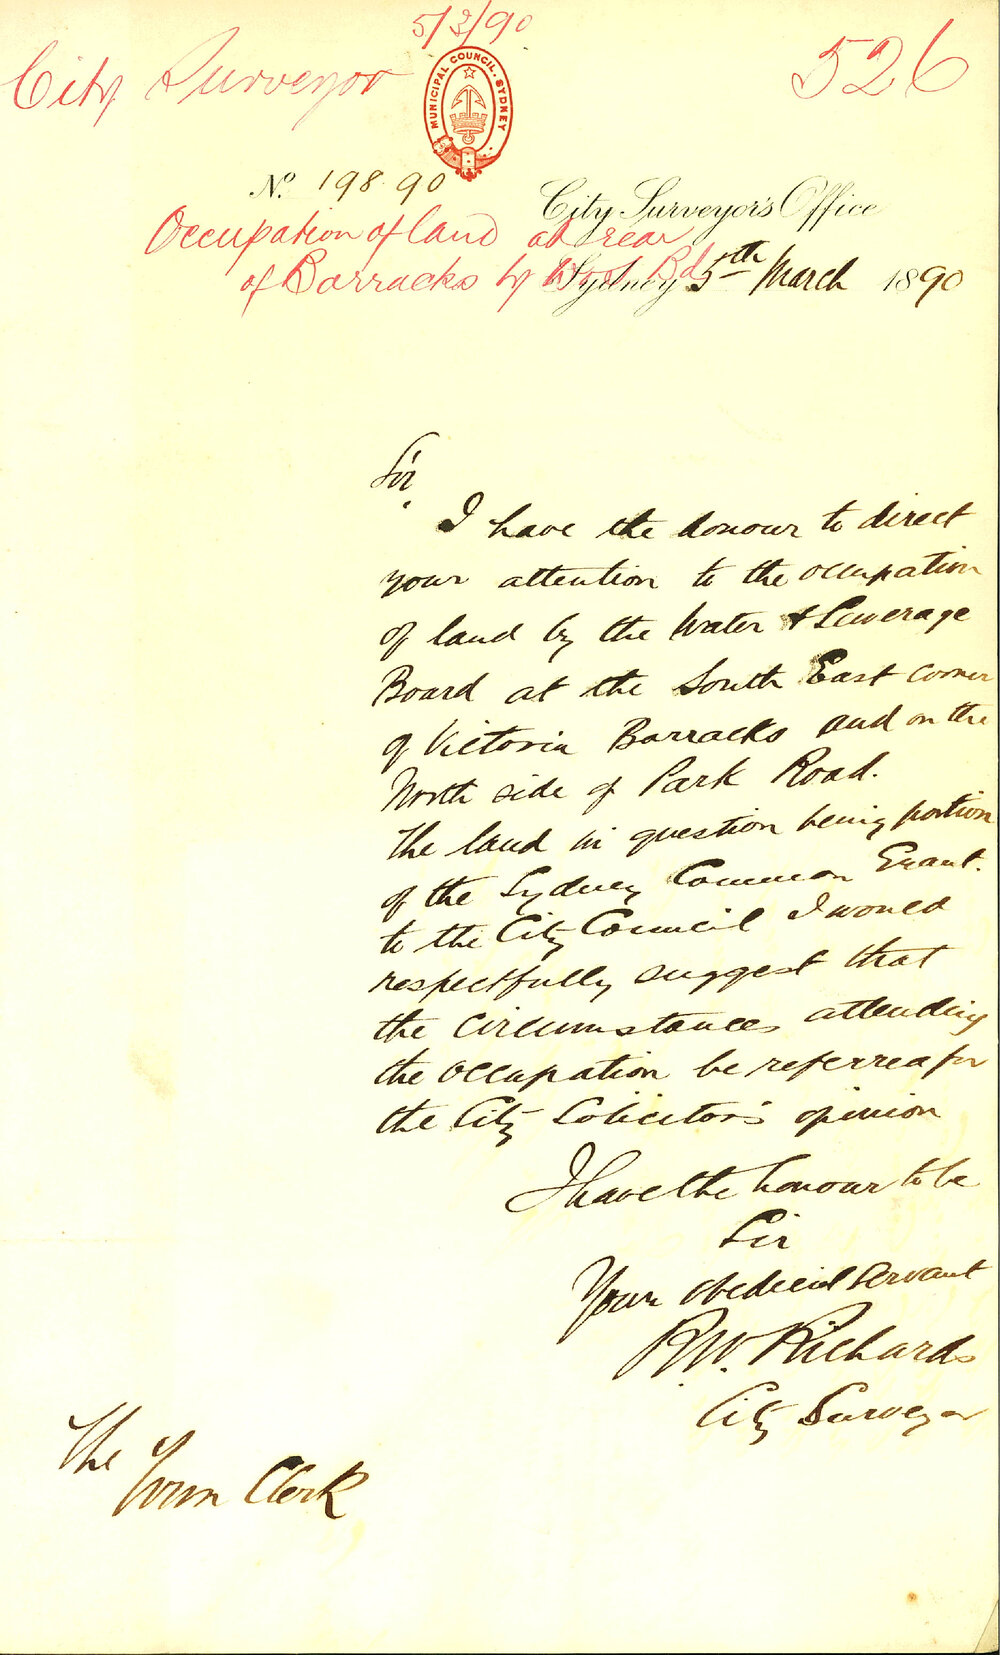 5/3/90
City Surveyor
526
MUNICIPAL COUNCIL. SYDNEY
No. 198.90
City Surveyor's Office
Occupation of land at rear
of Barracks by Bd
Sydney 5th March 1890
Sir
I have the honour to direct
your attention to the occupation
of land by the Water & Sewerage
Board at the South East corner
of Victoria Barracks and on the
North side of Park Road.
The land in question being portion
of the Sydney Common Grant.
to the City Council I would
respectfully suggest that
the circumstances attending
the occupation be referred for
the City Solicitor's opinion
I have the honour to be
Sir
Your obedient servant
R.W. Richards
City Surveyor
The
Town Clerk